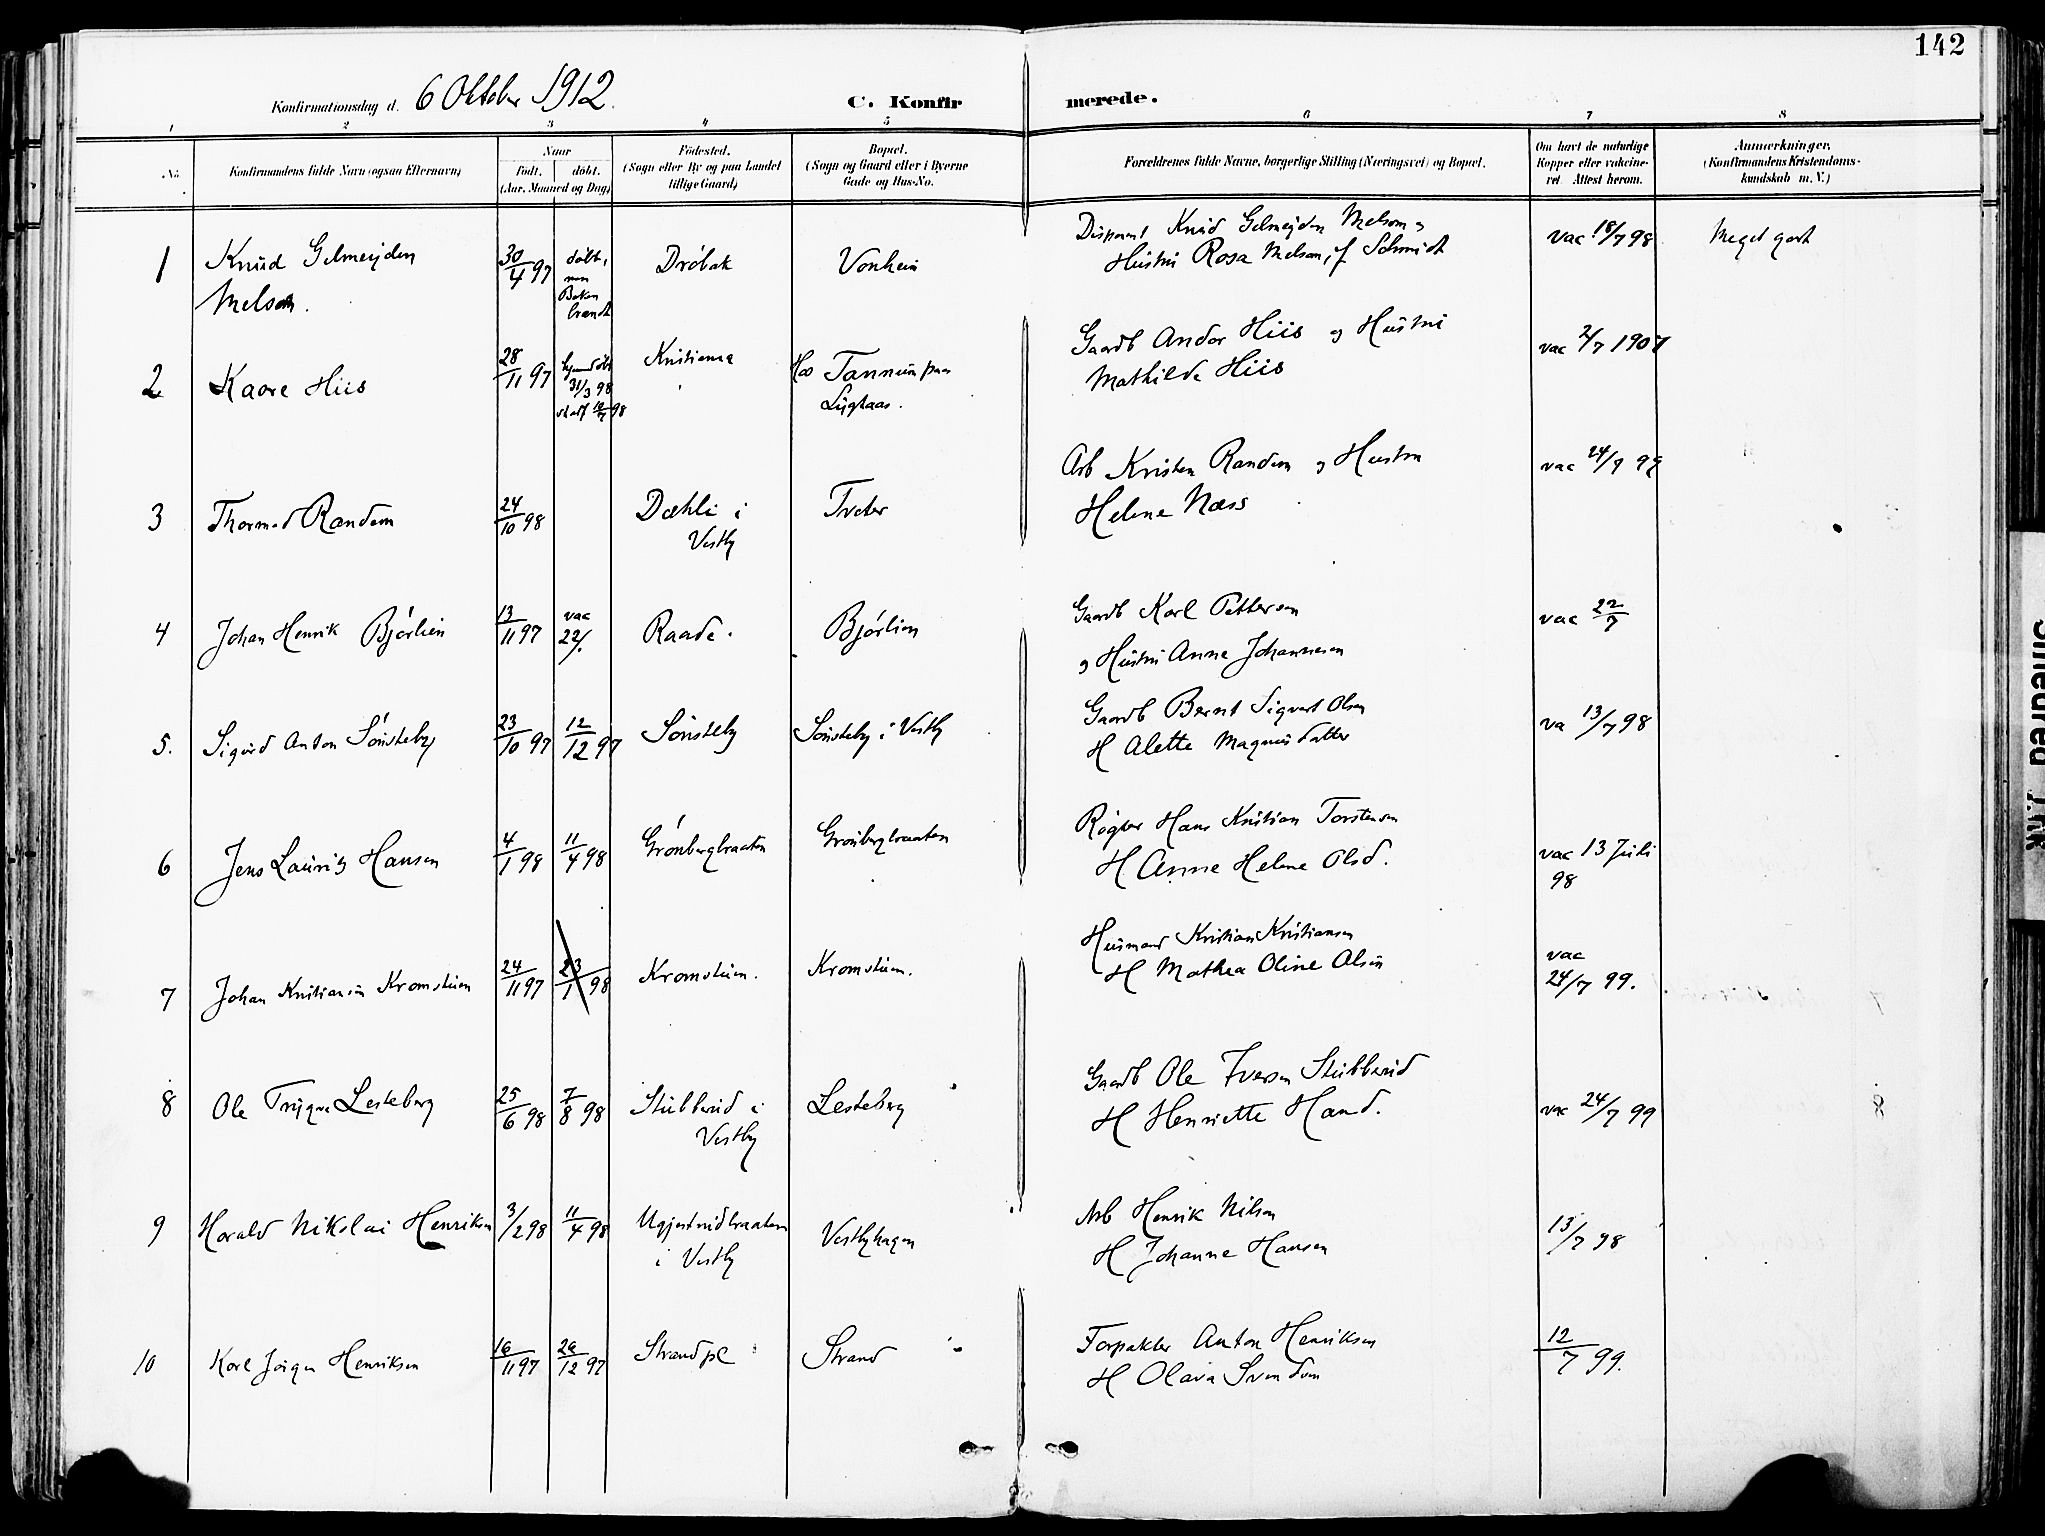 142
Konfirmationsdag d. 6 Oktober 1912. C. Konfirmerede.
1 2 3 4 5 6 7 8
No.
Konfirmandens fulde Navn (ogsaa Efternavn)
Naar
født. døbt.
(Aar, Maaned og Dag)
Fødested.
(Sogn eller By og paa Landet
tillige Gaard)
Bopæl.
(Sogn og Gaard eller i Byerne
Gade og Hus-No.
Forældrenes fulde Navne, borgerlige Stilling (Næringsvei) og Bopæl.
Om havt de naturlige
Kopper eller vakcine-
ret. Attest herom.
Anmærkninger.
(Konfirmandens Kristendoms-
kundskab m. V.)
1 Knud Gelmeijden
Melsom.
30/4 97
døbt,
men
Boken
brændt
Drøbak
Vonheim
Disponent Knud Gelmeijden Melsom og
Hustru Rosa Melsom, f Schmidt
vac 18/7 98
Meget godt
2 Kaare Hiis
28/11 97
hjemmedøbt
31/3 98
stadf 10/7 98
Kristiania
Hos Tannum paa
Lyghaas.
Gaardb Andor Hiis og Hustru
Mathilde Hiis
vac 2/7 1907
3 Thormod Randem
24/10 98
Dæhli i
Vestby
Tveter
Arb Kristen Randem og Hustru
Helene Næss
vac 24/7 99
4 Johan Henrik Bjørlien
13/11 97
vac
22/.
Raade.
Bjørlien
Gaardb Karl Pettersen
og Hustru Anne Johannesen
vac 22/7
5. Sigurd Anton Sønsteby
23/10 97
12/12 97
Sønsteby
Sønsteby i Vestby
Gaardb Bernt Sigvart Olsen
H Alette Magnusdatter
va 13/7 98
6 Jens Lauritz Hansen
4/1 98
11/4 98
Grønbergbraaten
Grønbergbraaten
Røgter Hans Kristian Torstensen
H Anne Helene Olsd.
vac 13 Juli
98
7 Johan Kristiansen Kromstuen
24/11 97
23/1 98
Kromstuen.
Kromstuen.
Husmand Kristian Kristiansen
H Mathea Oline Olsen
vac
24/7 99.
8 Ole Trygve Lesteberg
25/6 98
7/8 98
Stubberud i
Vestby
Lesteberg
Gaardb Ole Iversen Stubberud
H Henriette Hansd.
vac 24/7 99
9 Harald Nikolai Henriksen
3/2 98
11/4 98
Ugjestrudbraaten
i Vestby
Vestbyhagen
Arb Henrik Nilsen
H Johanne Hansen
13/7 98
10 Karl Jørgen Henriksen
16/11 97
26/12 97
Strand pl
Strand
Forpakter Anton Henriksen
H Olava Svendsen
12/7 99.